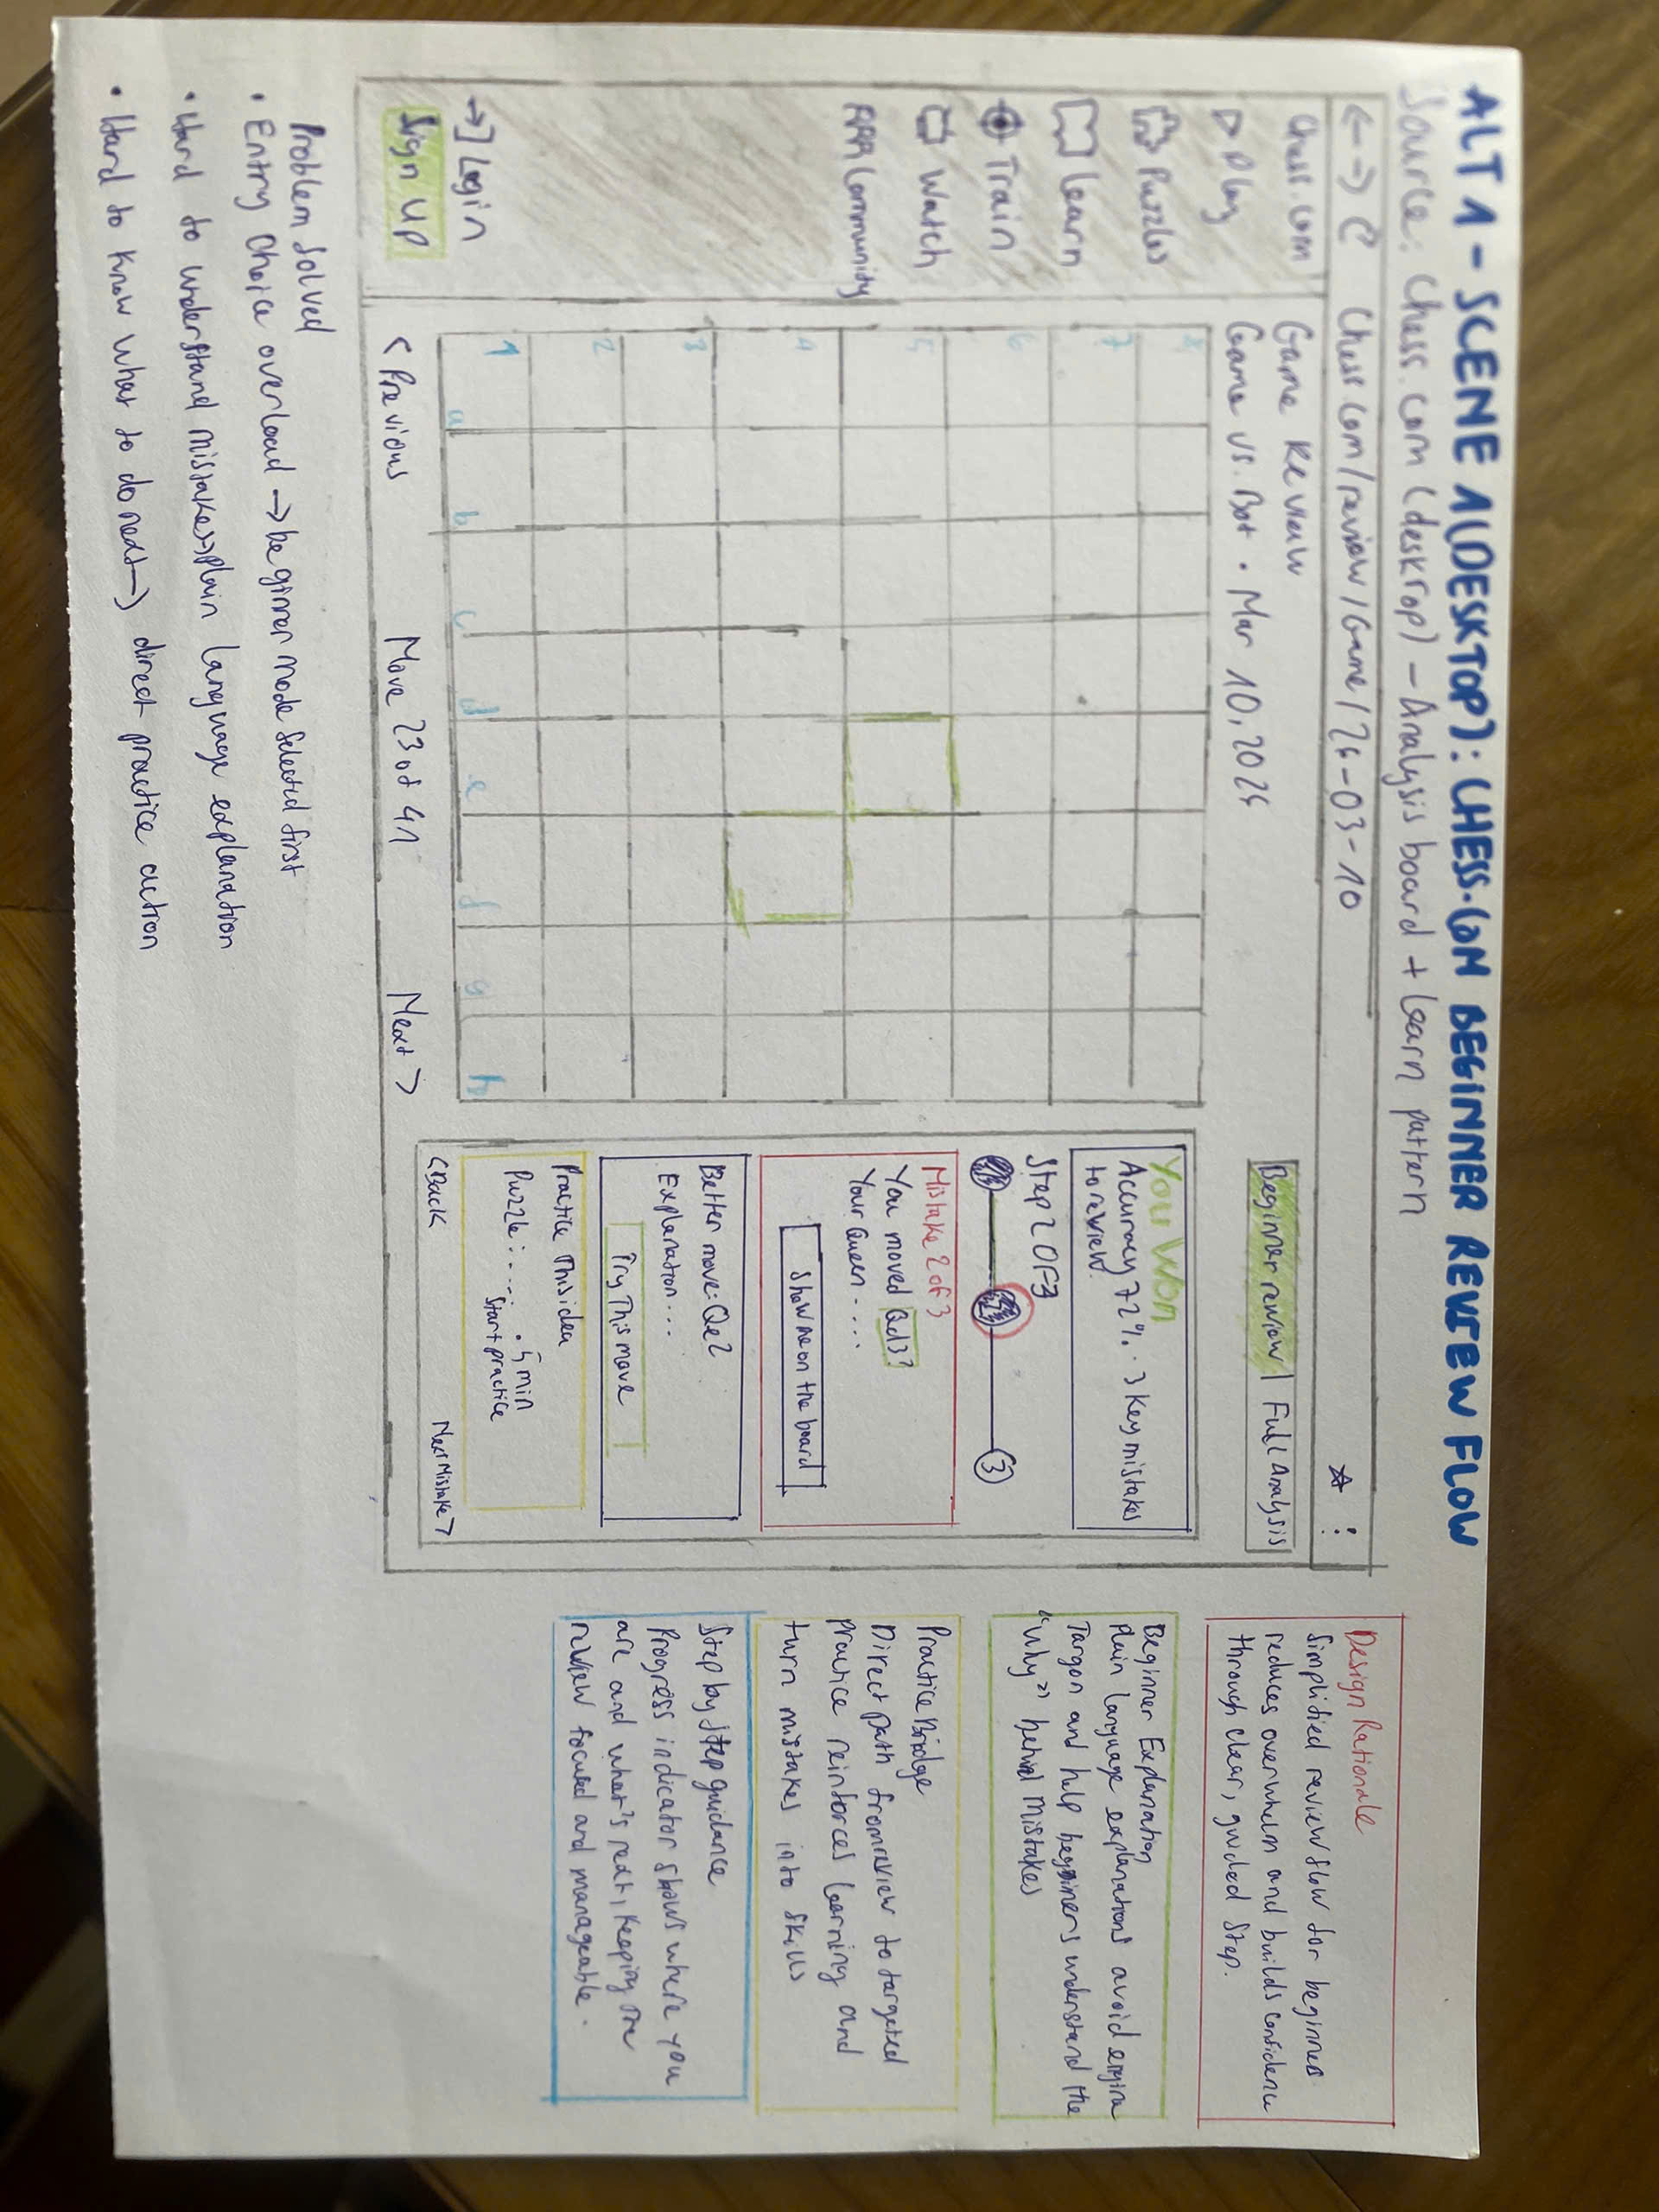 ALT 1 - SCENE 1(DESKTOP): CHESS.COM BEGINNER REVIEW FLOW
Source: Chess.com (desktop) - Analysis board + Learn pattern
← → C Chess.com/review/Game/24-03-10
☆ ⋮
Chess.com
Play
Puzzles
Learn
Train
Watch
Community
Login
Sign up
Game Review
Game vs. Bot • Mar 10, 2024
Beginner review | Full Analysis
8
7
6
5
4
3
2
1
a b c d e f g h
< Previous Move 23 of 41 Next >
You Won
Accuracy 72% • 3 key mistakes
to review.
Step 2 OF 3
3
Mistake 2 of 3
You moved Qd3?
Your Queen....
Show me on the board
Better move: Qe2
Explanation....
Try This move
Practice This idea
Puzzle: .... • 5 min
Start practice
< Back Next Mistake >
Design Rationale
Simplified review flow for beginner
reduces overwhelm and builds confidence
through clear, guided step.
Beginner Explanation
Plain language explanations avoid engine
Jargon and help beginners understand the
"why" behind Mistakes
Practice Bridge
Direct path from review to targeted
practice reinforces learning and
turn mistakes into skills
Step by step guidance
Progress indicator shows where you
are and what's next, keeping the
review focused and manageable.
Problem Solved
• Entry Choice overload → beginner mode selected first
• Hard to understand mistakes → Plain language explanation
• Hard to know what to do next → direct practice action